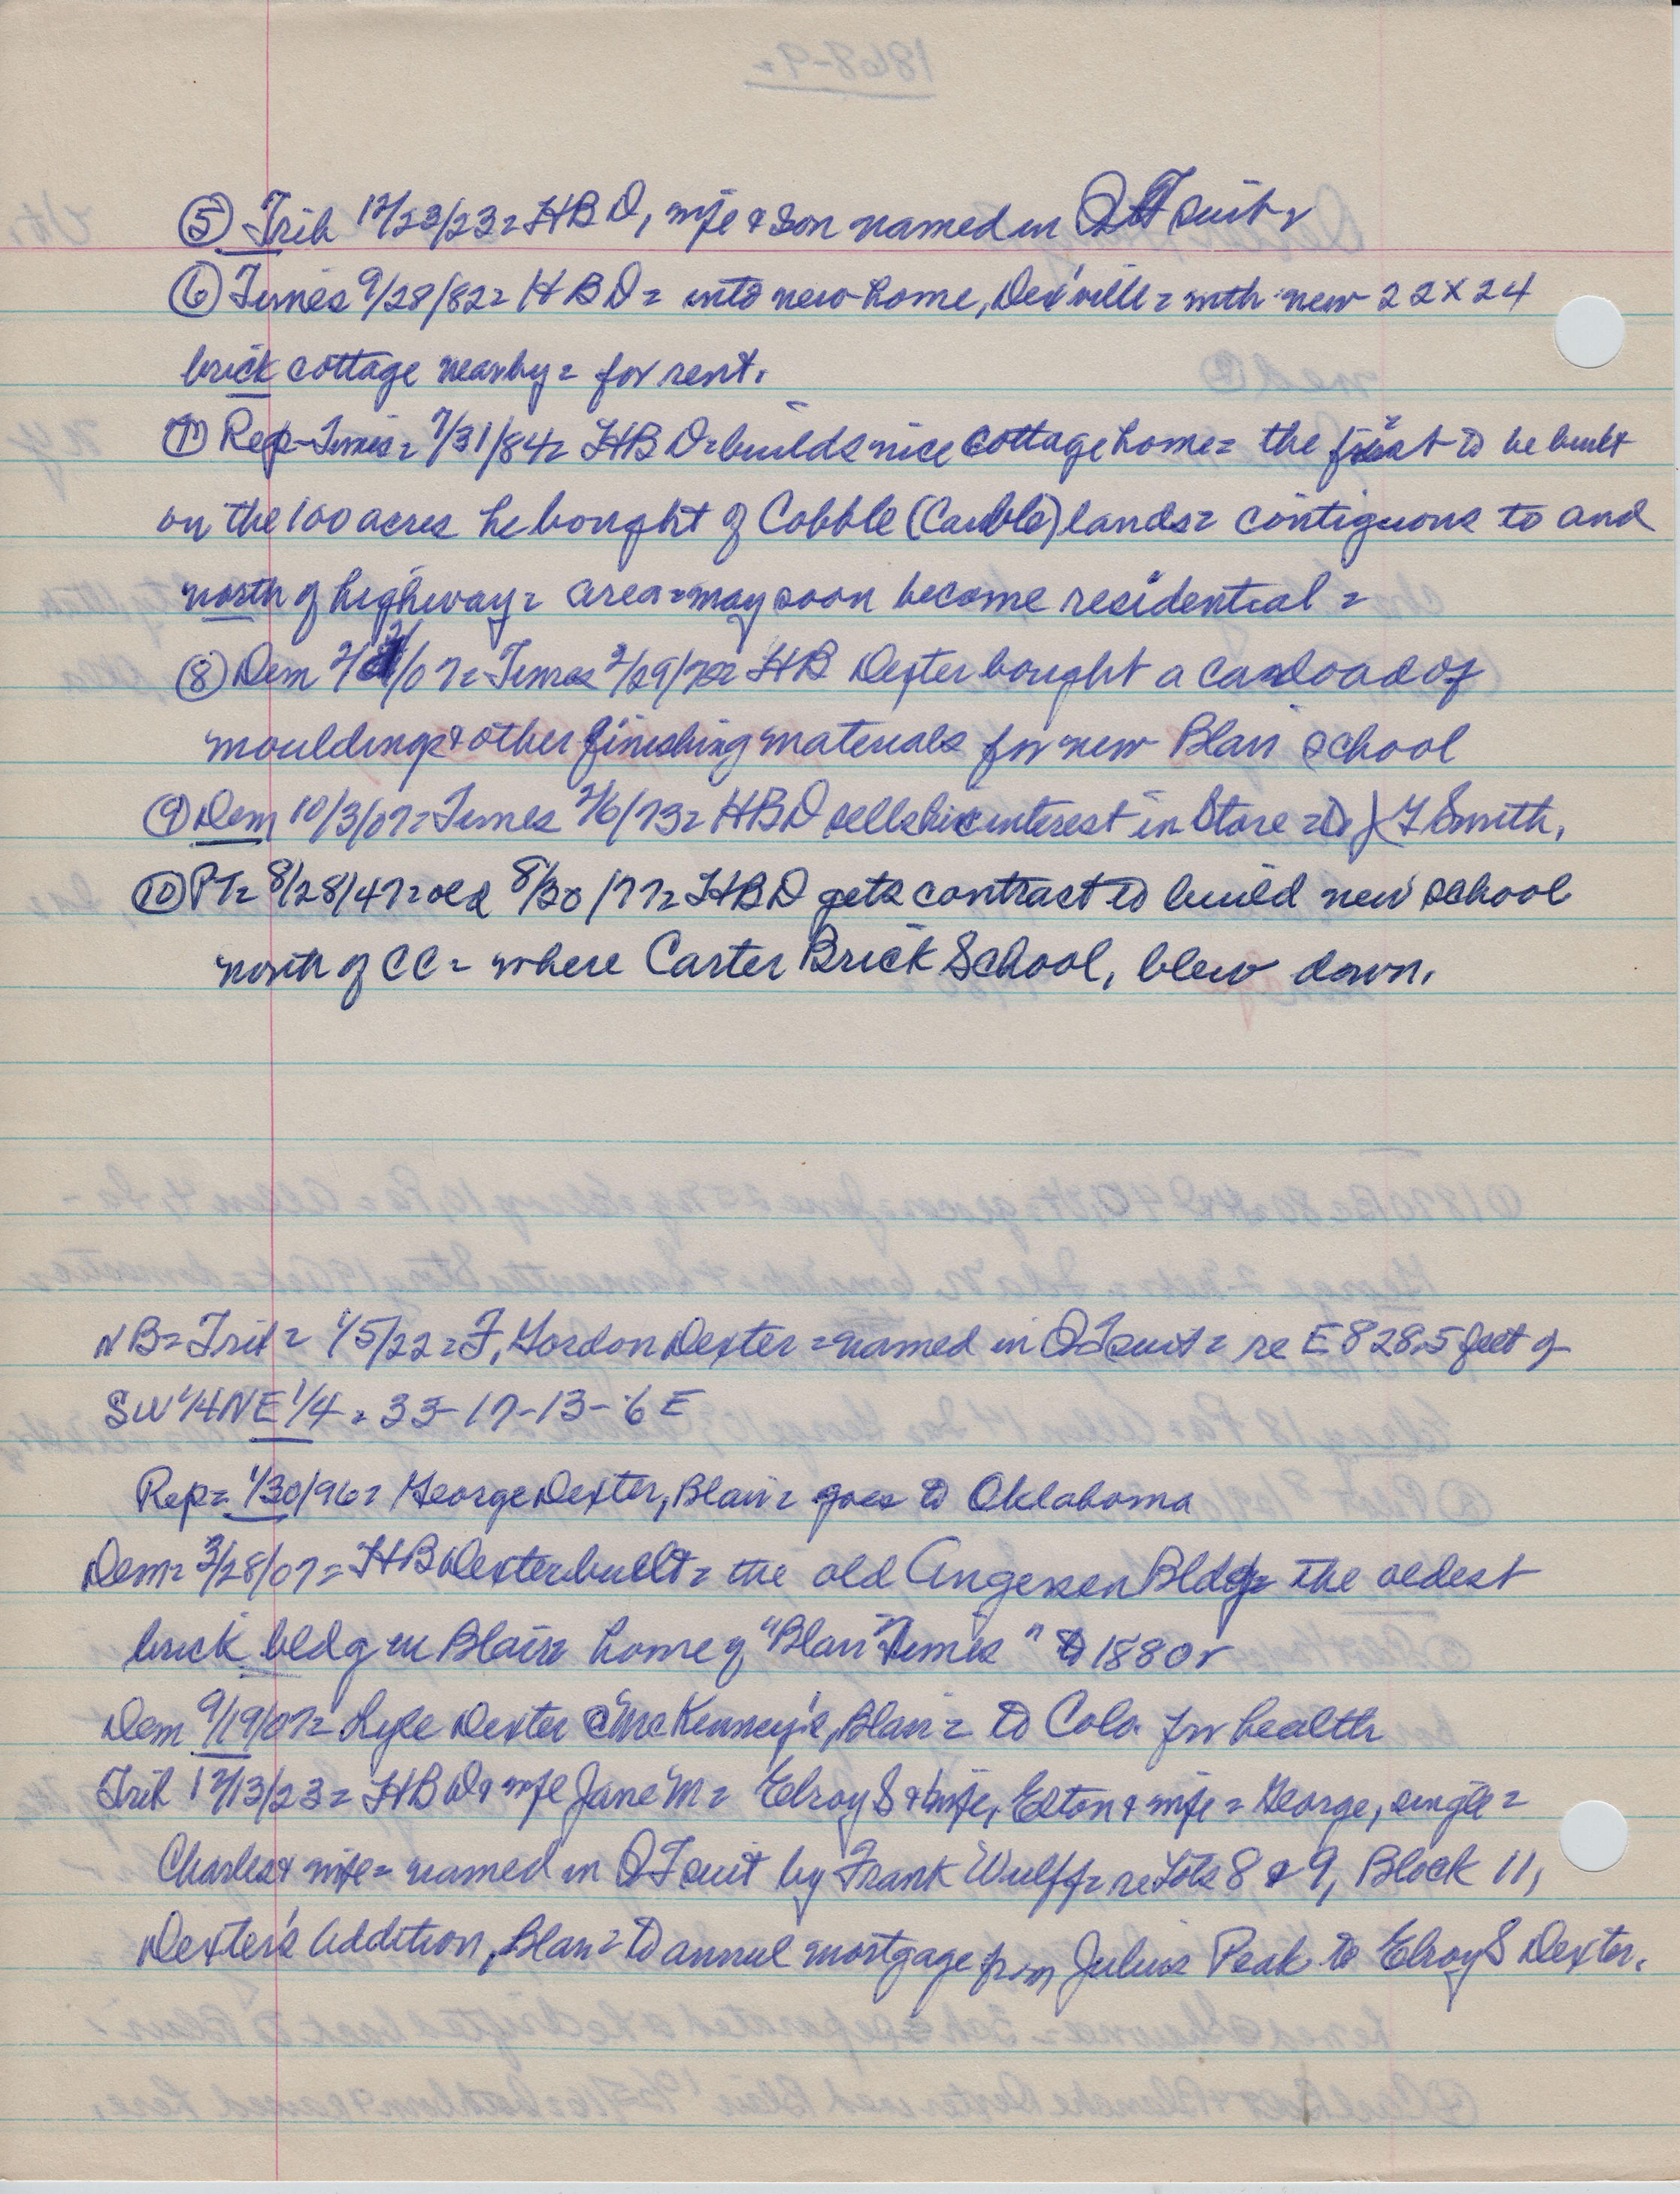 ⑤ Trib 12/23/23= HBD, wife & son named in QT suit=
⑥ Times 9/28/82= HBD= into new home, Dex'ville= with new 22x24
brick cottage nearby= for rent.
⑦ Rep-Times= 7/31/84= HBD= builds nice cottage home= the first to be built
on the 100 acres he bought of Cobble (Cauble) lands= contiguous to and
north of highway= area= may soon become residential=
⑧ Dem /07= Times 2/29/72= HB Dexter bought a carload of
mouldings & other finishing materials for new Blair school
⑨ Dem 10/3/07= Times 2/6/73= HBD sells his interest in Store= to J Smith.
⑩ PT= 8/28/47= old 8/30/77= HBD gets contract to build new school
north of CC= where Carter Brick School, blew down.
NB= Trib= 1/5/22= F. Gordon Dexter= named in QT suit= re E 828.5 feet of
SW 1/4 NE 1/4= 33-17-13-6 E
Rep= 1/30/96= George Dexter, Blair= goes to Oklahoma
Dem= 3/28/07= HB Dexter built= the old Angersen Bldg= the oldest
brick bldg in Blair= home of "Blair Times" to 1880=
Dem 9/19/07= Lyle Dexter McKenney's, Blair= to Colo. for health
Trib 12/13/23= HBD & wife Jane M= Elroy S & wife, Elton & wife= George, single=
Charles & wife= named in QT suit by Frank Wulff= re Lots 8 & 9, Block 11,
Dexter's Addition, Blair= to annul mortgage from Julius Peak to Elroy S Dexter.